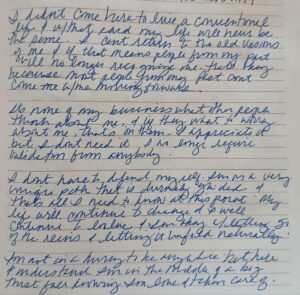 I didn't come here to live a conventional
life & w/ that said my life will never be
the same. I can't return to the old versions
of me & if that means people from my past
will no longer recognize me, that's okay
because most people from my past can't
come w/ me moving forward.
It's none of my business what other people
think about me, & if they want to worry
about me, that's on them. I appreciate it
but I don't need it. I no longer require
validation from anybody.
I don't have to defend myself. I'm on a very
unique path that is divinely guided &
that's all I need to know at this point. My
life will continue to change & I will
continue to evolve & I'm okay w/ letting go
of the reins & letting it unfold naturally.
I'm not in a hurry to be anywhere but here
& understand I'm in the middle of a big
trust fall knowing I'm being taken care of.